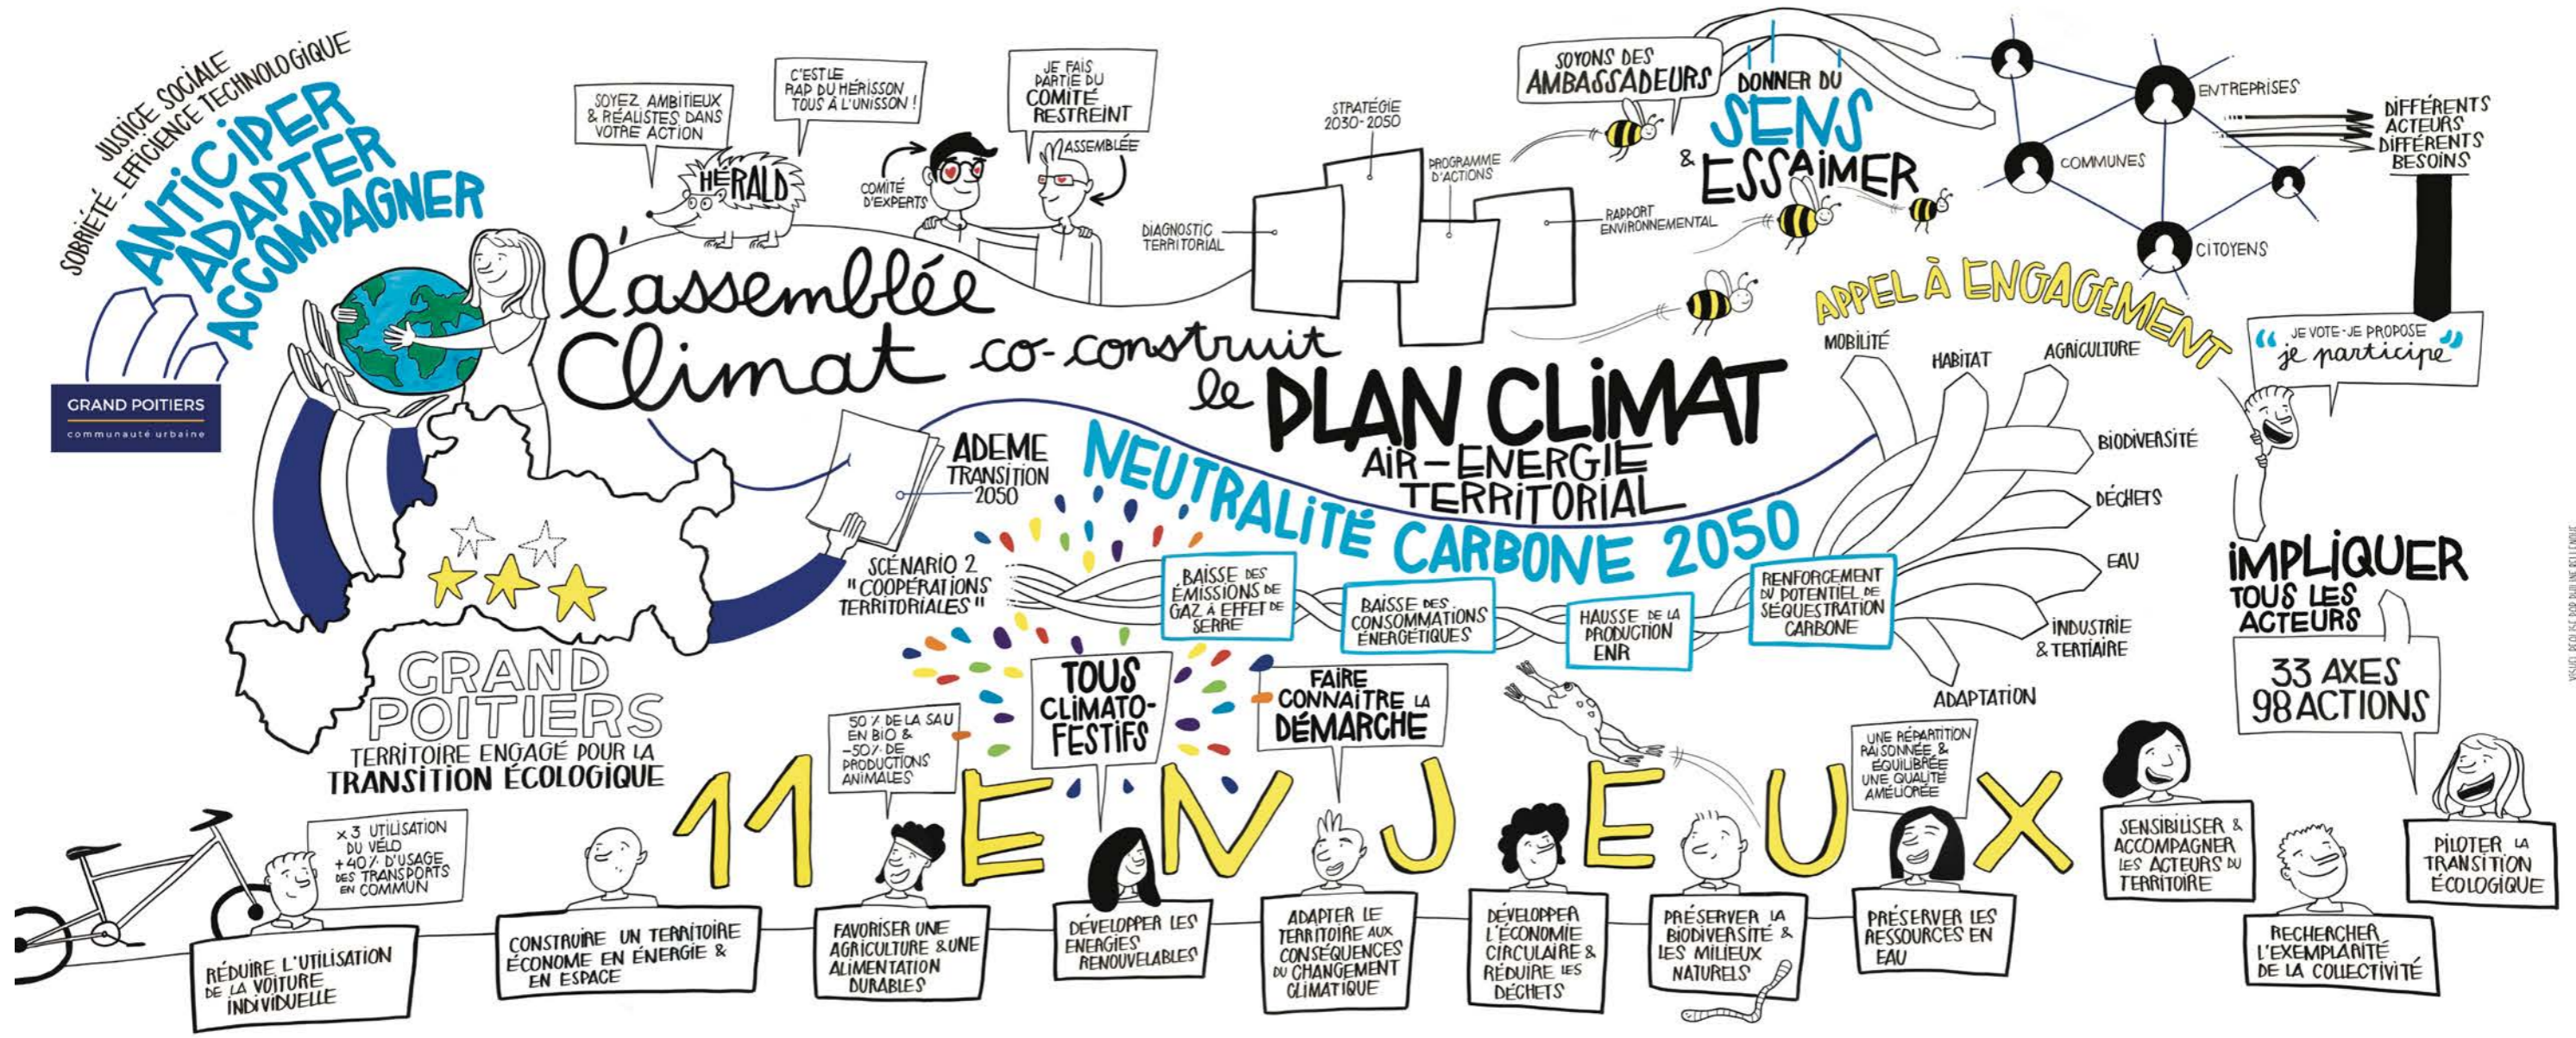 JUSTICE SOCIALE
SOBRIÉTÉ_EFFICIENCE TECHNOLOGIQUE
ANTICIPER
ADAPTER
ACCOMPAGNER
GRAND POITIERS
communauté urbaine
SOYEZ AMBITIEUX
& RÉALISTES DANS
VOTRE ACTION
HÉRALD
C'EST LE
RAP DU HÉRISSON
TOUS À L'UNISSON !
COMITÉ
D'EXPERTS
JE FAIS
PARTIE DU
COMITÉ
RESTREINT
ASSEMBLÉE
l'assemblée
Climat co-construit
le PLAN CLIMAT
AIR-ENERGIE
TERRITORIAL
DIAGNOSTIC
TERRITORIAL
STRATÉGIE
2030-2050
PROGRAMME
D'ACTIONS
RAPPORT
ENVIRONNEMENTAL
SOYONS DES
AMBASSADEURS
DONNER DU
SENS
& ESSAIMER
ENTREPRISES
COMMUNES
CITOYENS
DIFFÉRENTS
ACTEURS
DIFFÉRENTS
BESOINS
APPEL À ENGAGEMENT
“ JE VOTE-JE PROPOSE ”
je participe
MOBILITÉ
HABITAT
AGRICULTURE
BIODIVERSITÉ
DÉCHETS
EAU
INDUSTRIE
& TERTIAIRE
ADAPTATION
ADEME
TRANSITION
2050
SCÉNARIO 2
"COOPÉRATIONS
TERRITORIALES"
NEUTRALITÉ CARBONE 2050
BAISSE DES
ÉMISSIONS DE
GAZ À EFFET DE
SERRE
BAISSE DES
CONSOMMATIONS
ÉNERGÉTIQUES
HAUSSE DE LA
PRODUCTION
ENR
RENFORCEMENT
DU POTENTIEL DE
SÉQUESTRATION
CARBONE
IMPLIQUER
TOUS LES
ACTEURS
33 AXES
98 ACTIONS
GRAND
POITIERS
TERRITOIRE ENGAGÉ POUR LA
TRANSITION ÉCOLOGIQUE
11 ENJEUX
x3 UTILISATION
DU VÉLO
+40% D'USAGE
DES TRANSPORTS
EN COMMUN
50% DE LA SAU
EN BIO &
-50% DE
PRODUCTIONS
ANIMALES
TOUS
CLIMATO-
FESTIFS
FAIRE
CONNAITRE LA
DÉMARCHE
UNE RÉPARTITION
RAISONNÉE &
ÉQUILIBRÉE
UNE QUALITÉ
AMÉLIORÉE
RÉDUIRE L'UTILISATION
DE LA VOITURE
INDIVIDUELLE
CONSTRUIRE UN TERRITOIRE
ÉCONOME EN ÉNERGIE &
EN ESPACE
FAVORISER UNE
AGRICULTURE & UNE
ALIMENTATION
DURABLES
DÉVELOPPER LES
ENERGIES
RENOUVELABLES
ADAPTER LE
TERRITOIRE AUX
CONSÉQUENCES
DU CHANGEMENT
CLIMATIQUE
DÉVELOPPER
L'ÉCONOMIE
CIRCULAIRE &
RÉDUIRE LES
DÉCHETS
PRÉSERVER LA
BIODIVERSITÉ &
LES MILIEUX
NATURELS
PRÉSERVER LES
RESSOURCES EN
EAU
SENSIBILISER &
ACCOMPAGNER
LES ACTEURS DU
TERRITOIRE
RECHERCHER
L'EXEMPLARITÉ
DE LA COLLECTIVITÉ
PILOTER LA
TRANSITION
ÉCOLOGIQUE